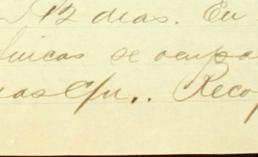 12 dias. En
nicas se ocupa
as C/u,. Reco